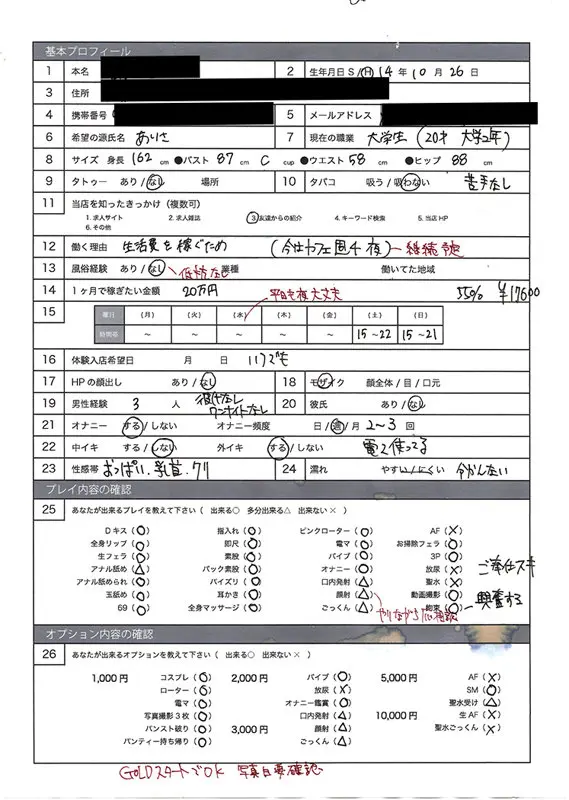 基本プロフィール
1 本名 2 生年月日 S / H 14 年 10 月 26 日
3 住所
4 携帯番号 5 メールアドレス
6 希望の源氏名 ありさ 7 現在の職業 大学生 (20才 大学2年)
8 サイズ 身長 162 cm ●バスト 87 cm C cup ●ウエスト 58 cm ●ヒップ 88 cm
9 タトゥー あり / なし 場所 10 タバコ 吸う / 吸わない 苦手なし
11 当店を知ったきっかけ(複数可)
1. 求人サイト 2. 求人雑誌 3. 友達からの紹介 4. キーワード検索 5. 当店 HP
6. その他
12 働く理由 生活費を稼ぐため (今はカフェ 週4 夜)
13 風俗経験 あり / なし 業種 働いてた地域
14 1ヶ月で稼ぎたい金額 20万円 平日も夜大丈夫 55%
15 曜日 (月) (火) (水) (木) (金) (土) (日)
時間帯 ~ ~ ~ ~ ~ 15~22 15~21
16 体験入店希望日 月 日 いつでも
17 HPの顔出し あり / なし 18 モザイク 顔全体 / 目 / 口元
19 男性経験 3 人 ワンナイトなし 20 彼氏 あり / なし
21 オナニー する / しない オナニー頻度 日 / 週 / 月 2~3 回
22 中イキ する / しない 外イキ する / しない 電マ使ってる
23 性感帯 おっぱい、乳首、クリ 24 濡れ やすい / にくい
プレイ内容の確認
25 あなたが出来るプレイを教えて下さい(出来る○ 多分出来る△ 出来ない×)
Dキス (○) 指入れ (○) ピンクローター (○) AF (×)
全身リップ (○) 即尺 (○) 電マ (○) お掃除フェラ (○)
生フェラ (○) 素股 (○) バイブ (○) 3P (○)
アナル舐め (△) バック素股 (○) オナニー (○) 放尿 (×) ご奉仕スキ
アナル舐められ (○) パイズリ (○) 口内発射 (△) 聖水 (×)
玉舐め (○) 耳かき (○) 顔射 (△) 動画撮影 (○) 興奮する
69 (○) 全身マッサージ (○) ごっくん (△) 拘束 (○)
オプション内容の確認
26 あなたが出来るオプションを教えて下さい(出来る○ 出来ない×)
1,000円 コスプレ (○) 2,000円 バイブ (○) 5,000円 AF (×)
ローター (○) 放尿 (×) SM (○)
電マ (○) オナニー鑑賞 (○) 聖水受け (△)
写真撮影3枚 (○) 口内発射 (△) 10,000円 生AF (×)
パンスト破り (○) 3,000円 顔射 (△) 聖水ごっくん (×)
パンティー持ち帰り (○) ごっくん (△)
GOLDスタートでOK 写真自粛確認